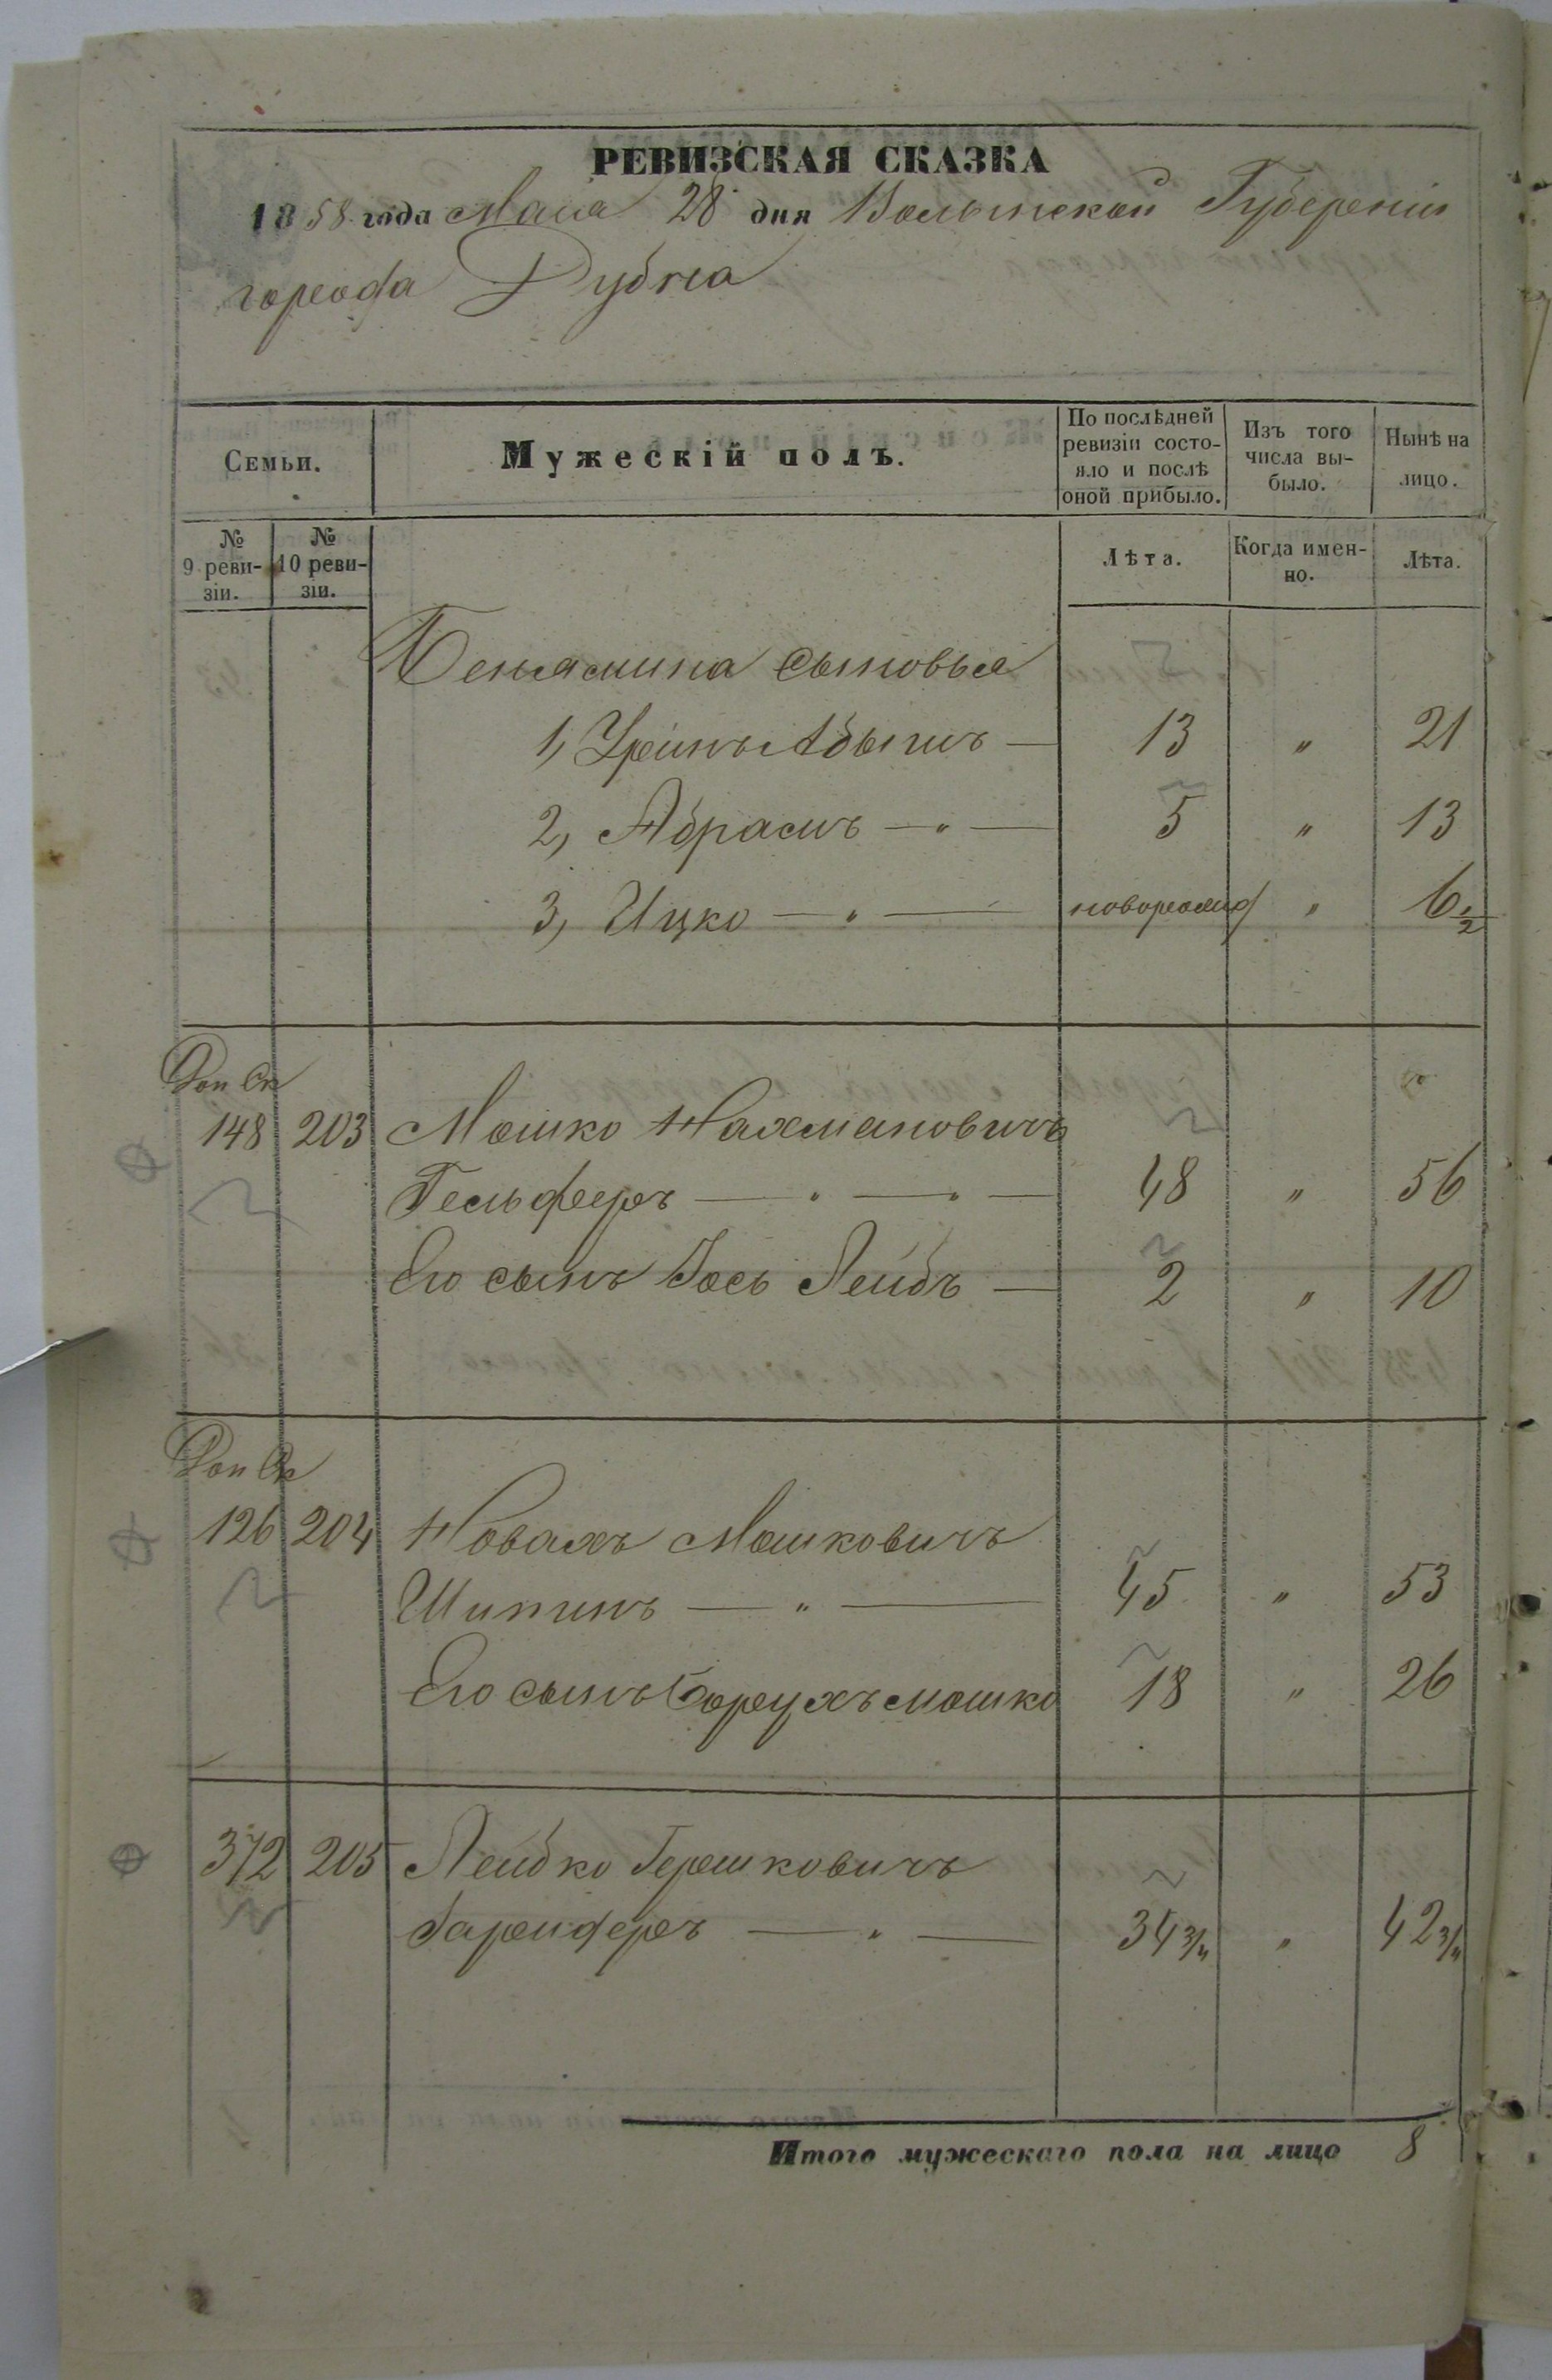 РЕВИЗСКАЯ СКАЗКА
1858 года Мая 28 дня Волынской Губернии
города Дубна
Семьи.
Мужескій полъ.
По послѣдней ревизіи состо-
яло и послѣ
оной прибыло.
Изъ того
числа вы-
было.
Нынѣ на
лицо.
№
9 реви-
зіи.
№
10 реви-
зіи.
Лѣта.
Когда имен-
но.
Лѣта.
Беньямина сыновья
1, Абышъ — 13 " 21
2, Абрамъ — " — 5 " 13
3, Ицко — " — новорожд " 6 1/2
Доп Ск
148 203 Мошко Нахмановичъ
Гельферъ — " — " — 48 " 56
Его сынъ Іось Лейбъ — 2 " 10
Доп Ск
126 204 Новахъ Мошковичъ
— " — 45 " 53
Его сынъ Борухъ Мошко 18 " 26
372 205 Лейбко Гершковичъ
— " — 34 3/4 " 42 3/4
Итого мужескаго пола на лицо 8